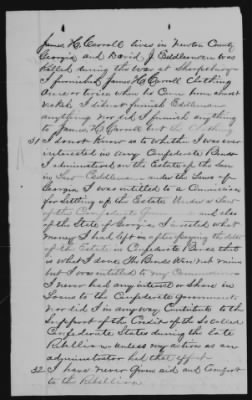 James H. Carroll lives in Newton County
Georgia and David J. Eddleman was
killed during the war at Sharpsburg
I furnished James H. Carroll Clothing
once or twice when he came home almost
naked I did not furnish Eddleman
anything nor did I furnish anything
to James H. Carroll but the Clothing
31 I do not know as to whether I was ever
interested in any Confederate Bonds
I administered on the Estate of my Son
in Law Eddleman under the Laws of
Georgia I was entitled to a Commission
for settling up the Estate Under a Law
of the Confederate Government and also
of the State of Georgia I invested what
money I had left on after paying the debts
of the Estate in Confederate Bonds that
is what I done The Bonds were not mine
but I was entitled to my Commissions
I never had any interest or share in
Loans to the Confederate Government
nor did I in any way Contribute to the
Support of the Credit of the so called
Confederate States during the late
Rebellion unless my action as an
administrator had that effect
32 I have never given aid and comfort
to the Rebellion